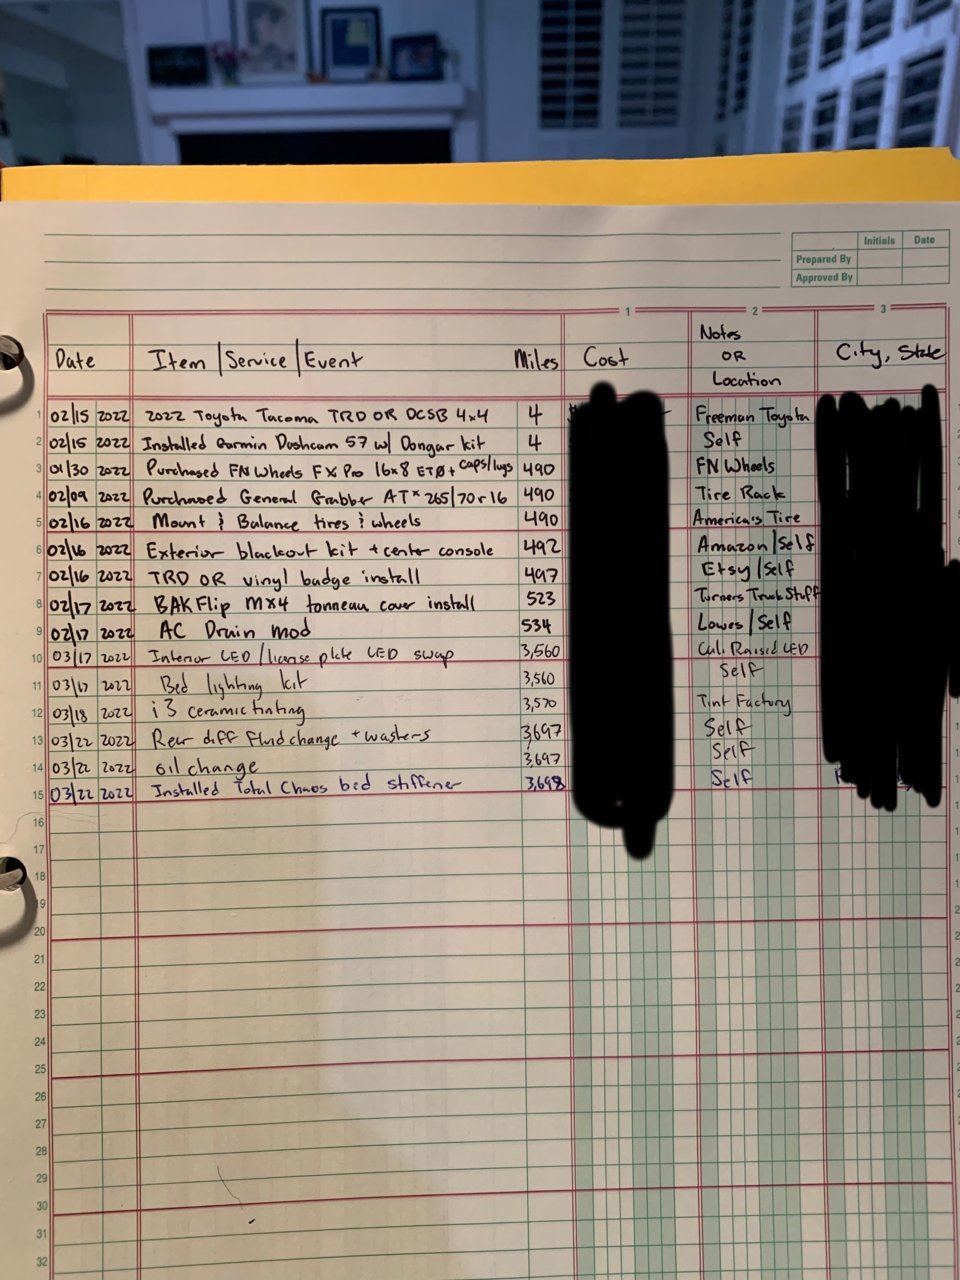 Initials Date
Prepared By
Approved By
1 2 3
Date Item | Service | Event Miles Cost Notes OR Location City, State
1 02/15 2022 2022 Toyota Tacoma TRD OR DCSB 4x4 4 Freeman Toyota
2 02/15 2022 Installed Garmin Dashcam 57 w/ Dongar kit 4 Self
3 01/30 2022 Purchased FN Wheels FX Pro 16x8 ET0 + caps/lugs 490 FN Wheels
4 02/09 2022 Purchased General Grabber ATx 265/70r16 490 Tire Rack
5 02/16 2022 Mount & Balance tires & wheels 490 America's Tire
6 02/16 2022 Exterior blackout kit + center console 492 Amazon/Self
7 02/16 2022 TRD OR vinyl badge install 497 Etsy/Self
8 02/17 2022 BAKFlip MX4 tonneau cover install 523 Turners Truck Stuff
9 02/17 2022 AC Drain mod 534 Lowes/Self
10 03/17 2022 Interior LED/license plate LED swap 3,560 Cali Raised LED
11 03/17 2022 Bed lighting kit 3,560 Self
12 03/18 2022 i3 ceramic tinting 3,570 Tint Factory
13 03/22 2022 Rear diff fluid change + washers 3,697 Self
14 03/22 2022 oil change 3,697 Self
15 03/22 2022 Installed Total Chaos bed stiffener 3,698 Self
16
17
18
19
20
21
22
23
24
25
26
27
28
29
30
31
32